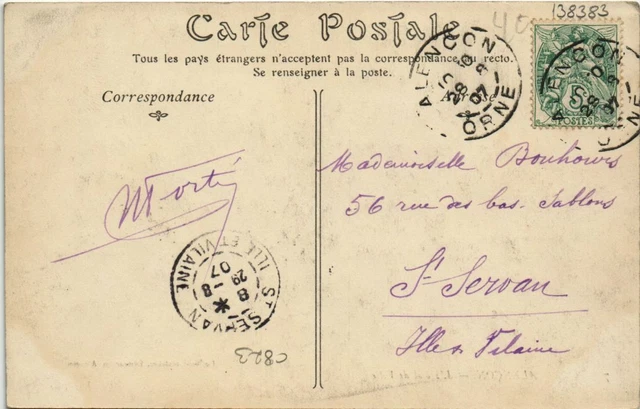 138383
Carte Postale
Tous les pays étrangers n'acceptent pas la correspondance au recto.
Se renseigner à la poste.
Correspondance
ALENCON
28 - 8
07
ORNE
5
POSTES
ALENCON
Mademoiselle Bouhours
56 rue des bas. Sablons
St Servan
Ille et Vilaine
ST SERVAN
ILLE ET VILAINE
8
29 - 8
07
C823